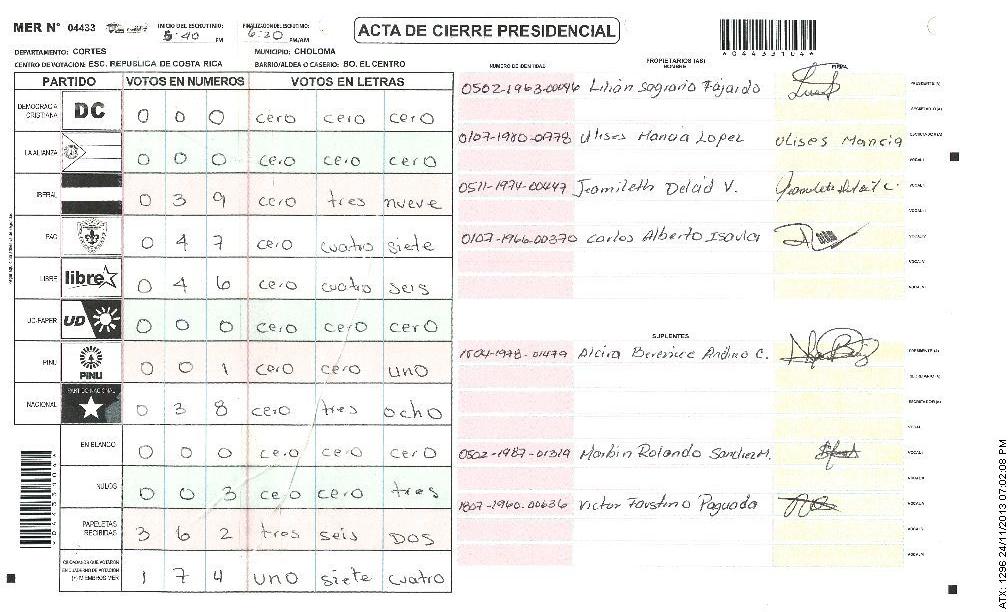 MER N° 04433 INICIO DEL ESCRUTINIO: 5:40 PM FINALIZACION DEL ESCRUTINIO: 6:20 PM/AM
ACTA DE CIERRE PRESIDENCIAL
*04433104*
DEPARTAMENTO: CORTES MUNICIPIO: CHOLOMA
CENTRO DE VOTACION: ESC. REPUBLICA DE COSTA RICA BARRIO/ALDEA O CASERIO: BO. EL CENTRO
PARTIDO VOTOS EN NUMEROS VOTOS EN LETRAS
DEMOCRACIA CRISTIANA DC 0 0 0 cero cero cero
LA ALIANZA 0 0 0 cero cero cero
LIBERAL 0 3 9 cero tres nueve
PAC 0 4 7 cero cuatro siete
LIBRE libre 0 4 6 cero cuatro seis
UD-FAPER UD 0 0 0 cero cero cero
PINU PINU 0 0 1 cero cero uno
NACIONAL PARTIDO NACIONAL 0 3 8 cero tres ocho
EN BLANCO 0 0 0 cero cero cero
NULOS 0 0 3 cero cero tres
PAPELETAS RECIBIDAS 3 6 2 tres seis DOS
CIUDADANOS QUE VOTARON EN CUADERNO DE VOTACION (+) MIEMBROS MER 1 7 4 uno siete cuatro
NUMERO DE IDENTIDAD PROPIETARIOS (AS) NOMBRE FIRMA
0502-1963-00096 Lilian Sagrario Fajardo PRESIDENTE (A)
SECRETARIO (A)
0107-1980-01778 Ulises Mancia Lopez Ulises Mancia ESCRUTADOR (A)
VOCAL I
0511-1974-00447 Jeamileth Delcid V.
VOCAL III
0107-1966-00370 Carlos Alberto Isaula VOCAL IV
VOCAL V
SUPLENTES
1504-1978-01479 Alcira Berenice Andino C. PRESIDENTE (A)
SECRETARIO (A)
ESCRUTADOR (A)
VOCAL I
0502-1987-01319 Marbin Rolando Sanchez M.
1807-1960-00636 Victor Faustino Paguada
ATX: 1296 24/11/2013 07:02:08 PM